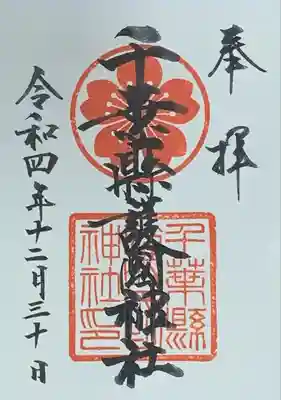 奉拝
千葉縣護國神社
千葉縣護國神社印
令和四年十二月三十日